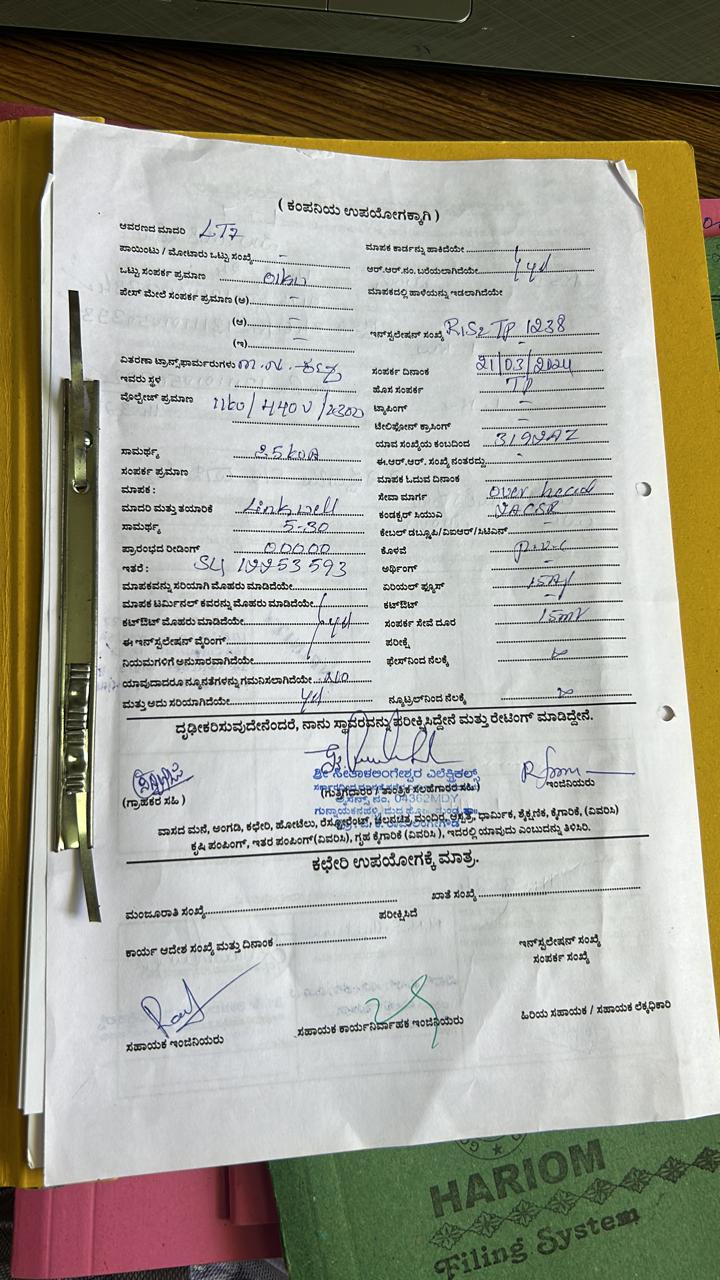 ( ಕಂಪನಿಯ ಉಪಯೋಗಕ್ಕಾಗಿ )
ಆವರಣದ ಮಾದರಿ LT7
ಪಾಯಿಂಟು / ಮೋಟಾರು ಒಟ್ಟು ಸಂಖ್ಯೆ - ಮಾಪಕ ಕಾರ್ಡನ್ನು ಹಾಕಿದೆಯೇ
ಒಟ್ಟು ಸಂಪರ್ಕ ಪ್ರಮಾಣ ಆರ್.ಆರ್.ನಂ. ಬರೆಯಲಾಗಿದೆಯೇ
ಪೇಸ್ ಮೇಲೆ ಸಂಪರ್ಕ ಪ್ರಮಾಣ (ಅ) - ಮಾಪಕದಲ್ಲಿ ಹಾಳೆಯನ್ನು ಇಡಲಾಗಿದೆಯೇ
(ಆ) -
(ಇ) - ಇನ್‌ಸ್ಟಲೇಷನ್ ಸಂಖ್ಯೆ TP 1238
ವಿತರಣಾ ಟ್ರಾನ್ಸ್‌ಫಾರ್ಮರುಗಳು ಸಂಪರ್ಕ ದಿನಾಂಕ 21/03/2024
ಇವರು ಸ್ಥಳ : ಹೊಸ ಸಂಪರ್ಕ TP
ವೋಲ್ಟೇಜ್ ಪ್ರಮಾಣ ಟ್ಯಾಪಿಂಗ್ -
ಟೆಲಿಫೋನ್ ಕ್ರಾಸಿಂಗ್ -
ಸಾಮರ್ಥ್ಯ ಯಾವ ಸಂಖ್ಯೆಯ ಕಂಬದಿಂದ
ಸಂಪರ್ಕ ಪ್ರಮಾಣ ಈ.ಆರ್.ಆರ್. ಸಂಖ್ಯೆ ನಂತರದ್ದು
ಮಾಪಕ : ಮಾಪಕ ಓದುವ ದಿನಾಂಕ
ಮಾದರಿ ಮತ್ತು ತಯಾರಿಕೆ Linkwell ಸೇವಾ ಮಾರ್ಗ over head
ಸಾಮರ್ಥ್ಯ 5-30 ಕಂಡಕ್ಟರ್ ಸಿಯುವಿ
ಪ್ರಾರಂಭದ ರೀಡಿಂಗ್ 00000 ಕೇಬಲ್ ಡಬ್ಲ್ಯೂಪಿ/ವಿಐಆರ್/ಸಿಟಿಎಸ್ -
ಇತರೆ : ಕೊಳವೆ P.V.C
ಮಾಪಕವನ್ನು ಸರಿಯಾಗಿ ಮೊಹರು ಮಾಡಿದೆಯೇ ಅರ್ಥಿಂಗ್ -
ಮಾಪಕ ಟರ್ಮಿನಲ್ ಕವರನ್ನು ಮೊಹರು ಮಾಡಿದೆಯೇ ಏರಿಯಲ್ ಫ್ಯೂಸ್
ಕಟ್‌ಔಟ್ ಮೊಹರು ಮಾಡಿದೆಯೇ ಕಟ್‌ಔಟ್ -
ಈ ಇನ್‌ಸ್ಟಲೇಷನ್ ವೈರಿಂಗ್ ಸಂಪರ್ಕ ಸೇವೆ ದೂರ
ನಿಯಮಗಳಿಗೆ ಅನುಸಾರವಾಗಿದೆಯೇ ಪರೀಕ್ಷೆ
ಯಾವುದಾದರೂ ನ್ಯೂನತೆಗಳನ್ನು ಗಮನಿಸಲಾಗಿದೆಯೇ NO ಫೇಸ್‌ನಿಂದ ನೆಲಕ್ಕೆ
ಮತ್ತು ಅದು ಸರಿಯಾಗಿದೆಯೇ ನ್ಯೂಟ್ರಲ್‌ನಿಂದ ನೆಲಕ್ಕೆ
ದೃಢೀಕರಿಸುವುದೇನೆಂದರೆ, ನಾನು ಸ್ಥಾವರವನ್ನು ಪರೀಕ್ಷಿಸಿದ್ದೇನೆ ಮತ್ತು ರೇಟಿಂಗ್ ಮಾಡಿದ್ದೇನೆ.
ಎಲೆಕ್ಟ್ರಿಕಲ್ಸ್
(ಗ್ರಾಹಕರ ಸಹಿ ) (ಗುತ್ತಿಗೆದಾರರ / ತಾಂತ್ರಿಕ ಸಲಹೆಗಾರರ ಸಹಿ) ಇಂಜಿನಿಯರು
ವಾಸದ ಮನೆ, ಅಂಗಡಿ, ಕಛೇರಿ, ಹೋಟೆಲು, ರೆಸ್ಟೋರೆಂಟ್, ಚಲನಚಿತ್ರ, ಮಂದಿರ, ಆಸ್ಪತ್ರೆ, ಧಾರ್ಮಿಕ, ಶೈಕ್ಷಣಿಕ, ಕೈಗಾರಿಕೆ, (ವಿವರಿಸಿ)
ಕೃಷಿ ಪಂಪಿಂಗ್, ಇತರ ಪಂಪಿಂಗ್ (ವಿವರಿಸಿ), ಗೃಹ ಕೈಗಾರಿಕೆ (ವಿವರಿಸಿ ), ಇದರಲ್ಲಿ ಯಾವುದು ಎಂಬುದನ್ನು ತಿಳಿಸಿರಿ.
ಕಛೇರಿ ಉಪಯೋಗಕ್ಕೆ ಮಾತ್ರ.
ಮಂಜೂರಾತಿ ಸಂಖ್ಯೆ ಖಾತೆ ಸಂಖ್ಯೆ
ಪರೀಕ್ಷಿಸಿದೆ
ಕಾರ್ಯ ಆದೇಶ ಸಂಖ್ಯೆ ಮತ್ತು ದಿನಾಂಕ ಇನ್‌ಸ್ಟಲೇಷನ್ ಸಂಖ್ಯೆ
ಸಂಪರ್ಕ ಸಂಖ್ಯೆ
ಸಹಾಯಕ ಇಂಜಿನಿಯರು ಸಹಾಯಕ ಕಾರ್ಯನಿರ್ವಾಹಕ ಇಂಜಿನಿಯರು ಹಿರಿಯ ಸಹಾಯಕ / ಸಹಾಯಕ ಲೆಕ್ಕಾಧಿಕಾರಿ
HARIOM
Filing System